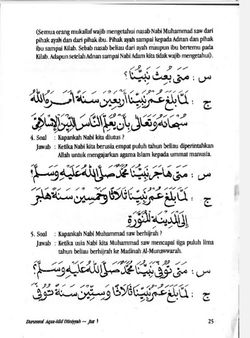 (Semua orang mukallaf wajib mengetahui nasab Nabi Muhammad saw dari
pihak ayah dan dari pihak ibu. Pihak ayah sampai kepada Adnan dan pihak
ibu sampai Kilab. Sebab nasab beliau dari ayah maupun ibu bertemu pada
Kilab. Adapun setelah Adnan sampai Nabi Adam kita tidak wajib mengetahui).
س : مَتَى بُعِثَ نَبِيُّنَا؟
ج : لَمَّا بَلَغَ عُمْرُ نَبِيِّنَا أَرْبَعِيْنَ سَنَةً أَمَرَهُ اللهُ
سُبْحَانَهُ وَتَعَالَى بِأَنْ يُعَلِّمَ النَّاسَ الدِّيْنَ الْإِسْلَامِيَّ
4. Soal : Kapankah Nabi kita diutus ?
Jawab : Ketika Nabi kita berusia empat puluh tahun beliau diperintahkan
Allah untuk mengajarkan agama Islam kepada ummat manusia.
س : مَتَى هَاجَرَ نَبِيُّنَا مُحَمَّدٌ صَلَّى اللهُ عَلَيْهِ وَسَلَّمَ؟
ج : لَمَّا بَلَغَ عُمْرُ نَبِيِّنَا ثَلَاثًا وَخَمْسِيْنَ سَنَةً هَاجَرَ
إِلَى الْمَدِيْنَةِ الْمُنَوَّرَةِ
5. Soal : Kapankah Nabi Muhammad saw berhijrah ?
Jawab : Ketika usia Nabi kita Muhammad saw mencapai tiga puluh lima
tahun beliau berhijrah ke Madinah Al-Munawwarah.
س : مَتَى تُوُفِّيَ نَبِيُّنَا مُحَمَّدٌ صَلَّى اللهُ عَلَيْهِ وَسَلَّمَ؟
ج : لَمَّا بَلَغَ عُمْرُ نَبِيِّنَا ثَلَاثًا وَسِتِّيْنَ سَنَةً تُوُفِّيَ
Durusul Aqa-idid Diniyyah — Juz 1
25